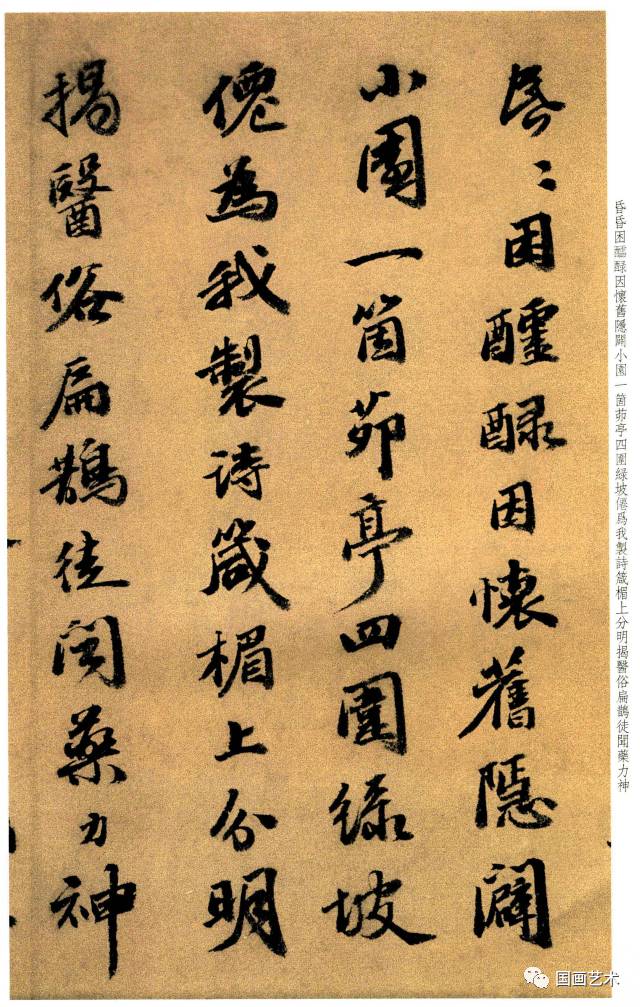 昏〻困醽醁因懷舊隱闢
小園一箇茆亭四圍緑坡
僊為我製詩箴楣上分明
揭醫俗扁鵲徒闻藥力神
昏昏困醽醁因懷舊隱闢小園一箇茆亭四圍緑坡僊爲我製詩箴楣上分明揭醫俗扁鵲徒聞藥力神
国画艺术